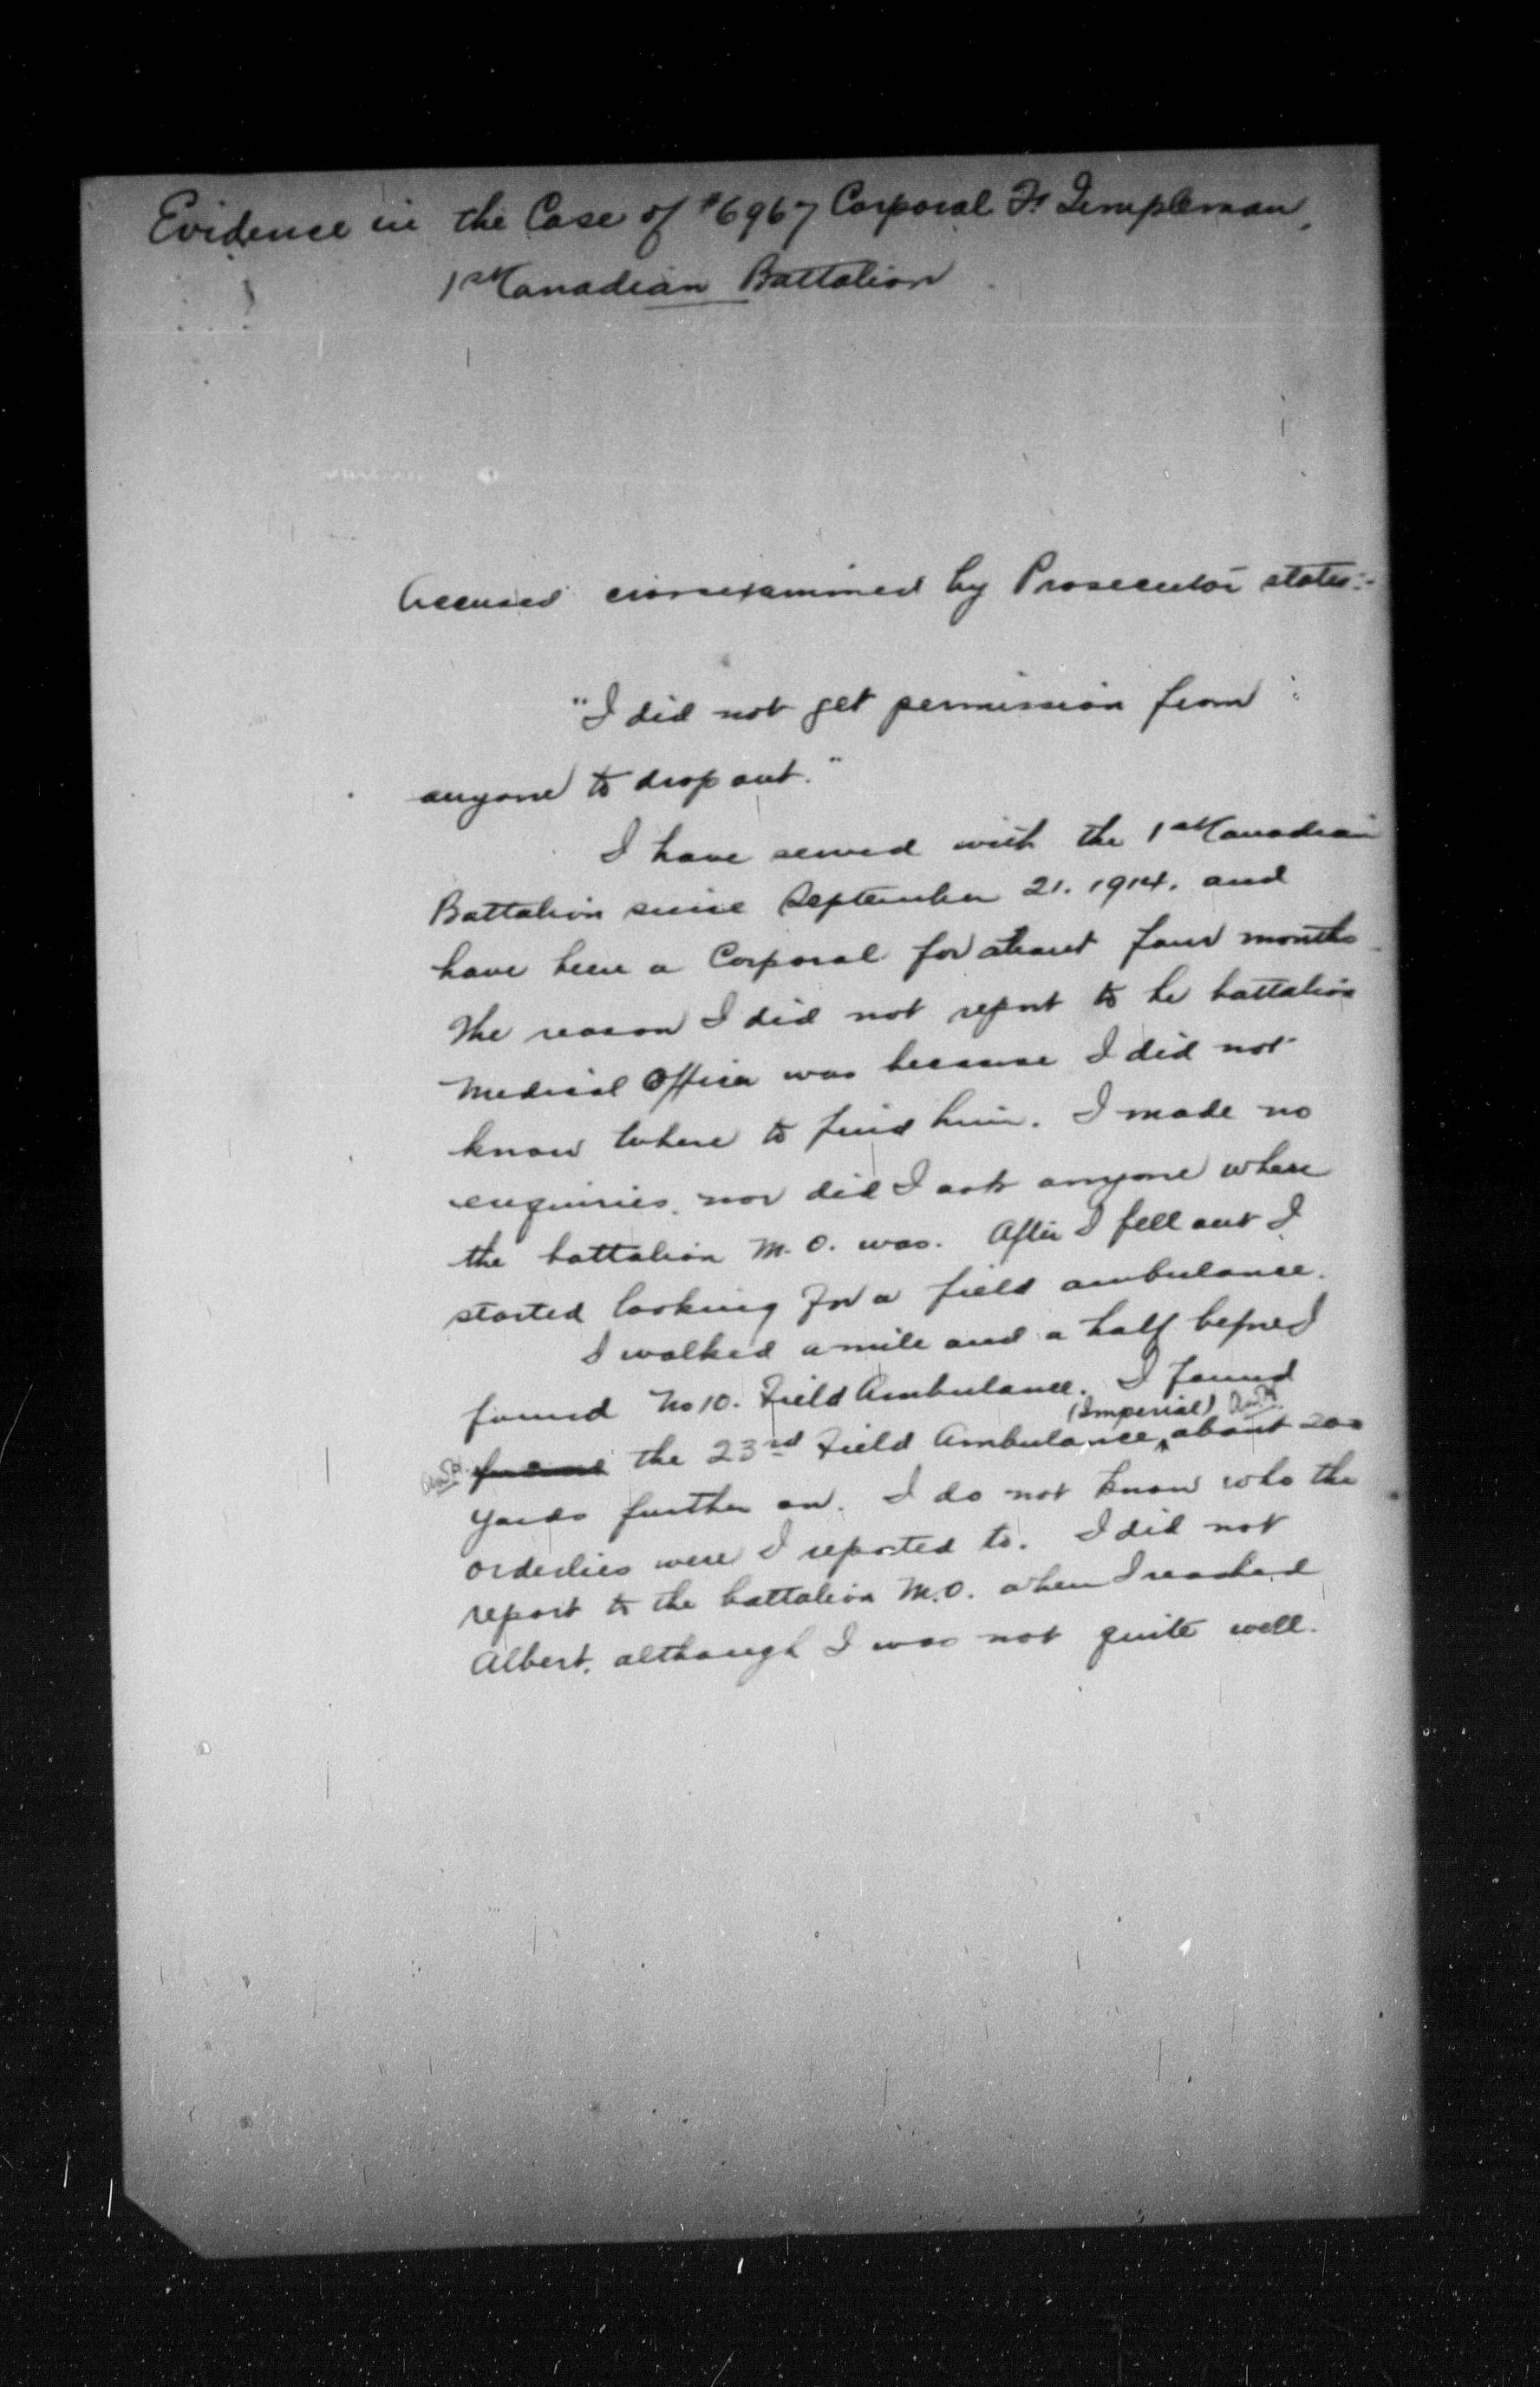 Evidence in the Case of #6967 Corporal F. Templeman,
1st Canadian Battalion
Accused crossexamined by Prosecutor states:-
"I did not get permission from
anyone to drop out."
I have served with the 1st Canadian
Battalion since September 21. 1914. and
have been a Corporal for about four months
The reason I did not report to he battalion
Medical Officer was because I did not
know where to find him. I made no
enquiries nor did I ask anyone where
the battalion M.O. was. After I fell out I
started looking for a field ambulance.
I walked a mile and a half before I
found No 10. Field Ambulance. I found
(Imperial)
the 23rd Field Ambulance, about 200
yards further on. I do not know who the
orderlies were I reported to. I did not
report to the battalion M.O. when I reached
Albert, although I was not quite well.